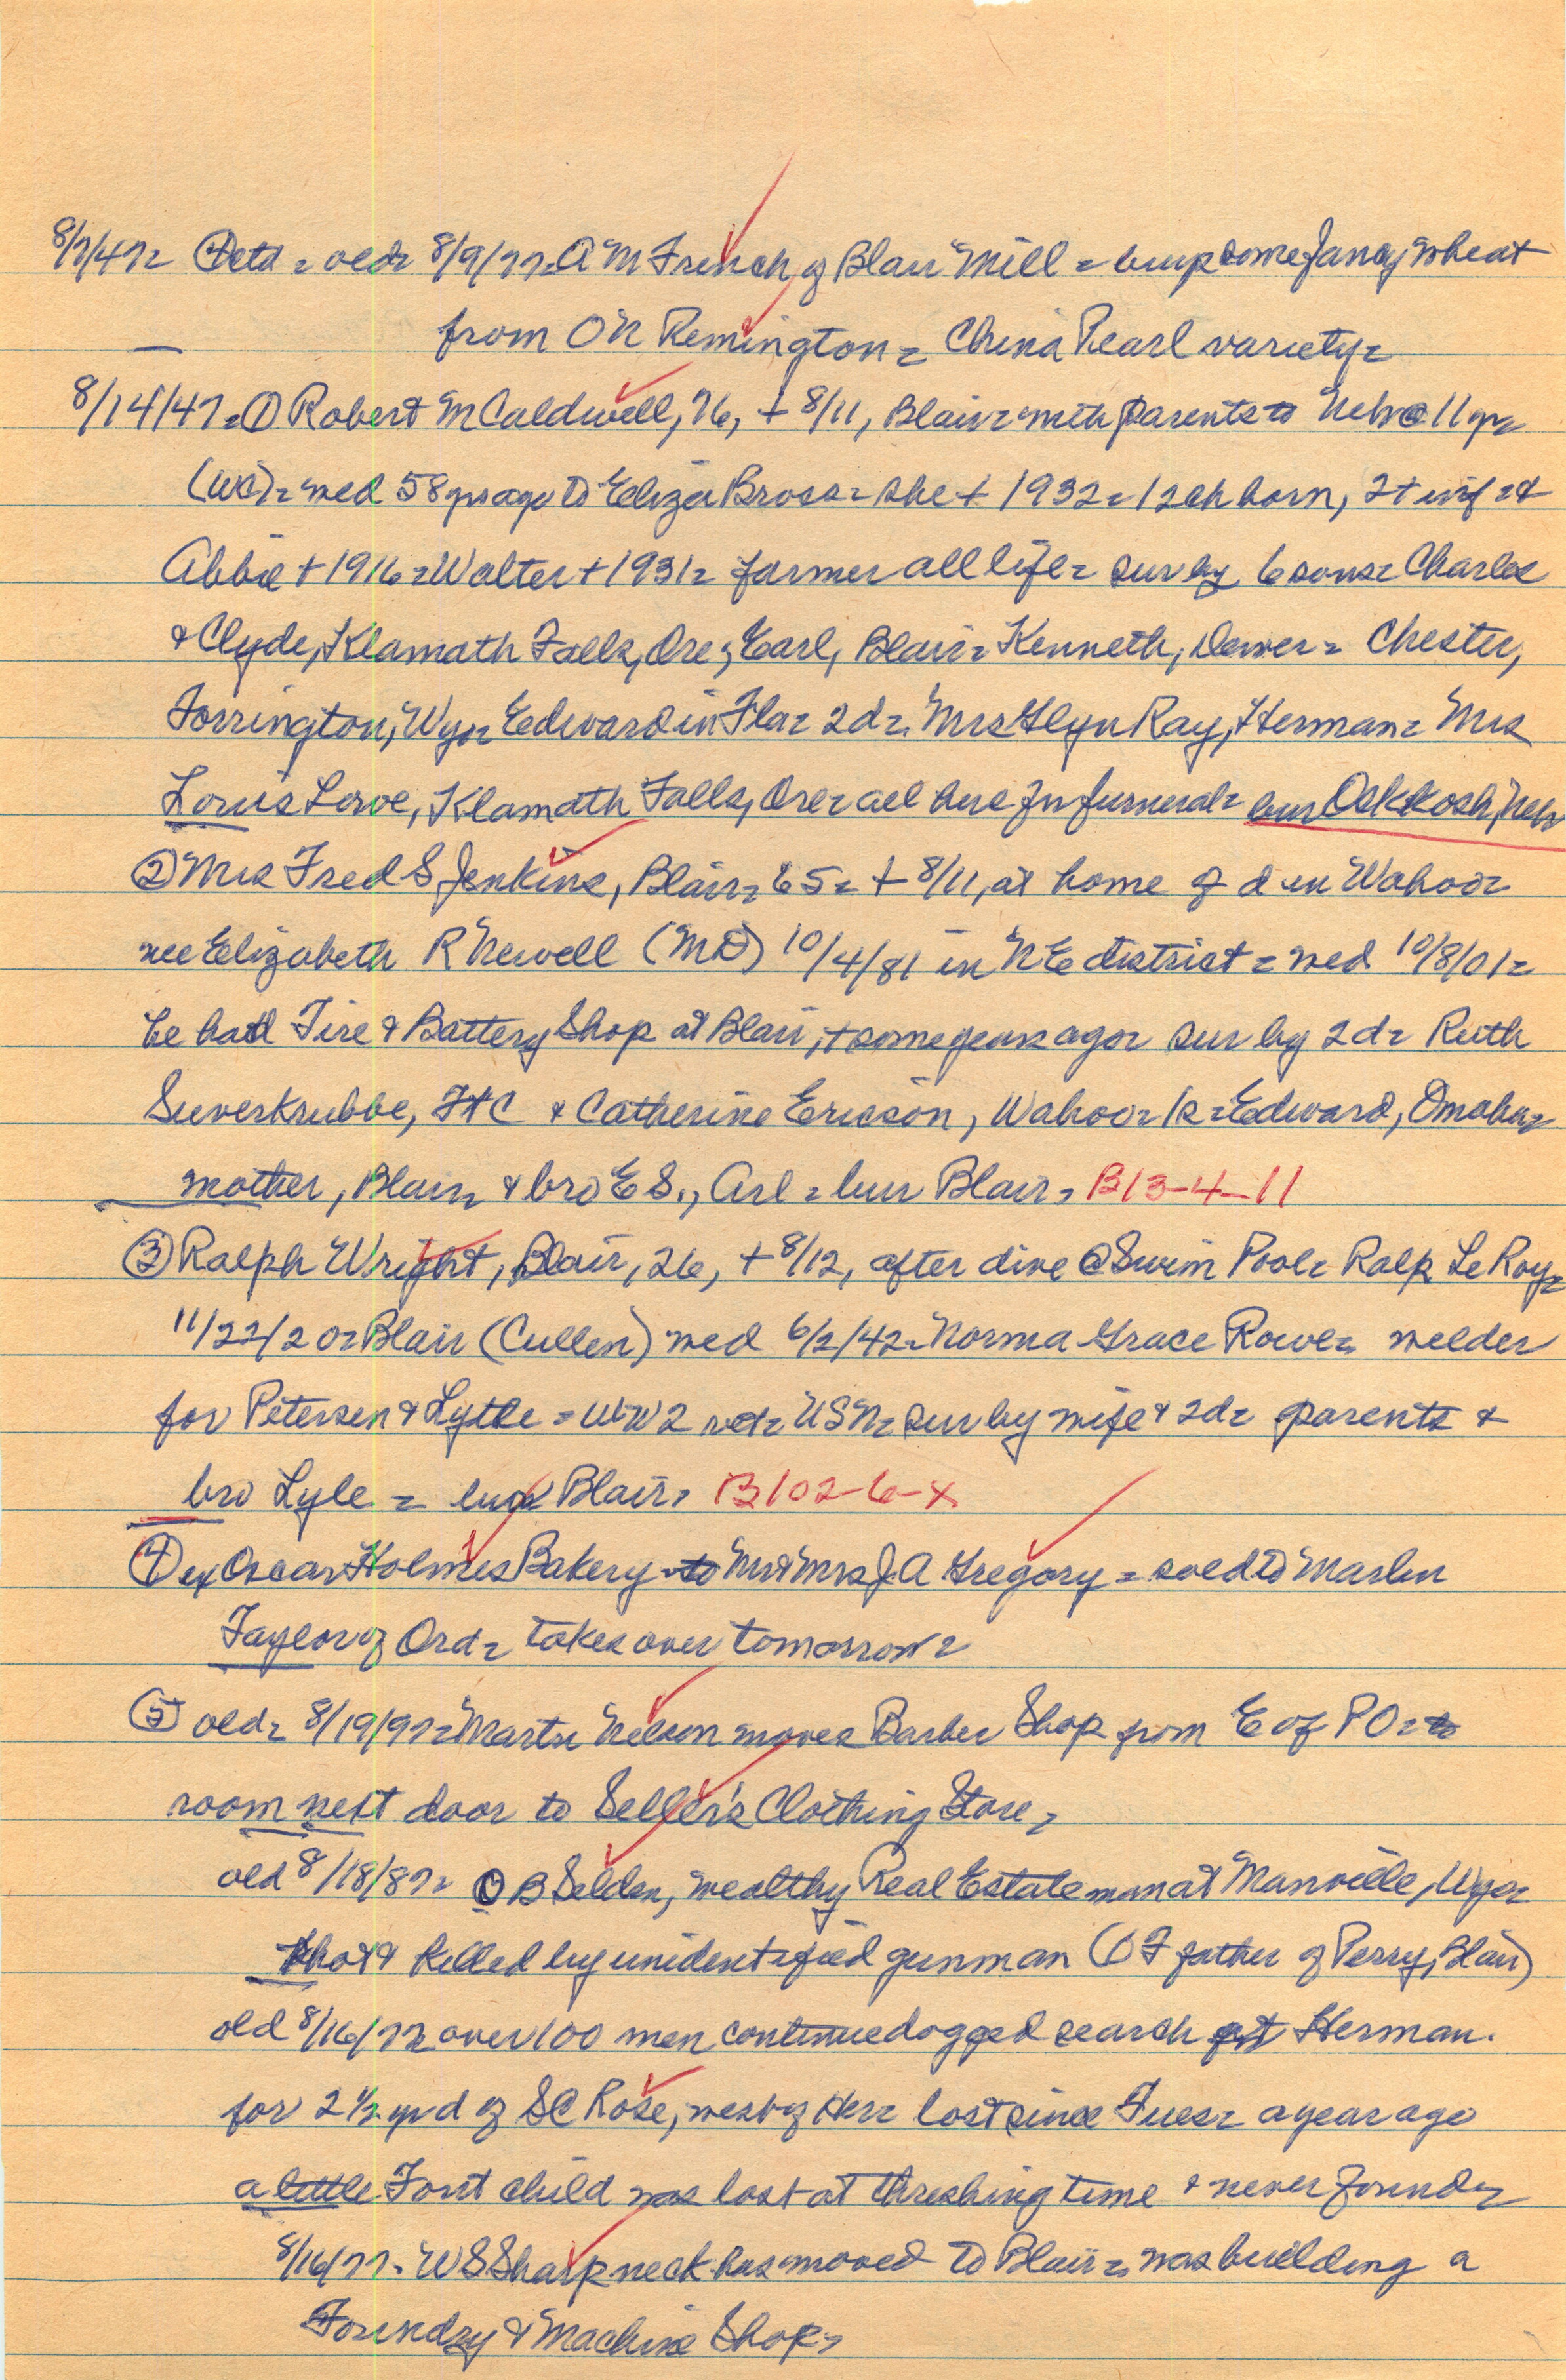 8/7/47= ④ctd = old= 8/9/77= A M French of Blair Mill = buys some fancy wheat
from O N Remington = China Pearl variety=
8/14/47= ① Robert M Caldwell, 76, + 8/11, Blair= with parents to Neb @ 11 yr=
(wc)= wed 58 yrs ago to Eliza Bross= she + 1932= 12 ch born, 2 + inf = &
Abbie + 1916= Walter + 1931= farmer all life= sur by 6 sons= Charles
& Clyde, Klamath Falls, Ore; Earl, Blair= Kenneth, Denver= Chester,
Torrington, Wyo= Edward in Fla= 2 d= Mrs Glyn Ray, Herman= Mrs
Louis Love, Klamath Falls, Ore= all here for funeral= bur Oskkosh, Neb
② Mrs Fred S Jenkins, Blair= 65= + 8/11, at home of d in Wahoo=
nee Elizabeth R Newell (MD) 10/4/81 in NE district = wed 10/8/01=
he had Tire & Battery Shop at Blair, + some years ago= sur by 2 d= Ruth
Suverkrubbe, FtC & Catherine Ericson, Wahoo= 1s= Edward, Omaha=
mother, Blair= & bro E S., Arl = bur Blair= B13-4-11
③ Ralph Wright, Blair, 26, + 8/12, after dive @ Swim Pool= Ralp LeRoy=
11/22/20= Blair (Cullen) wed 6/2/42= Norma Grace Rowe= welder
for Petersen & Lytle = WW2 vet= USN= sur by wife & 2d= parents &
bro Lyle = bur Blair= B102-6-x
④ ex Oscar Holmes Bakery to Mr & Mrs J. A Gregory = sold to Marlin
Taylor of Ord= takes over tomorrow=
⑤ old= 8/19/97= Martin Nelson moves Barber Shop from E of PO= to
room next door to Seller's Clothing Store=
old 8/18/87= O B Selden, wealthy Real Estate man at Manville, Wyo=
shot & killed by unidentified gunman (OF father of Perry, Blair)
old 8/16/77= over 100 men continue dogged search at Herman.
for 2 1/2 yr d of S C Rose, west of Her= lost since Tues= a year ago
a little Font child was lost at threshing time & never found=
8/16/77= W S Sharpneck has moved to Blair= was building a
Foundry & Machine Shop=